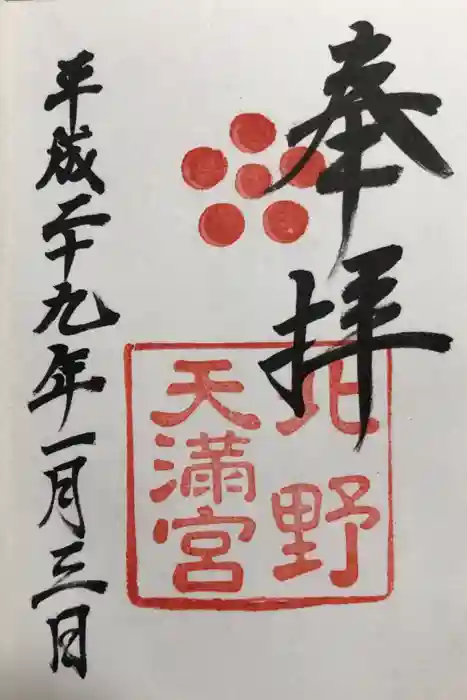 奉拝
北野
天満宮
平成二十九年一月三日